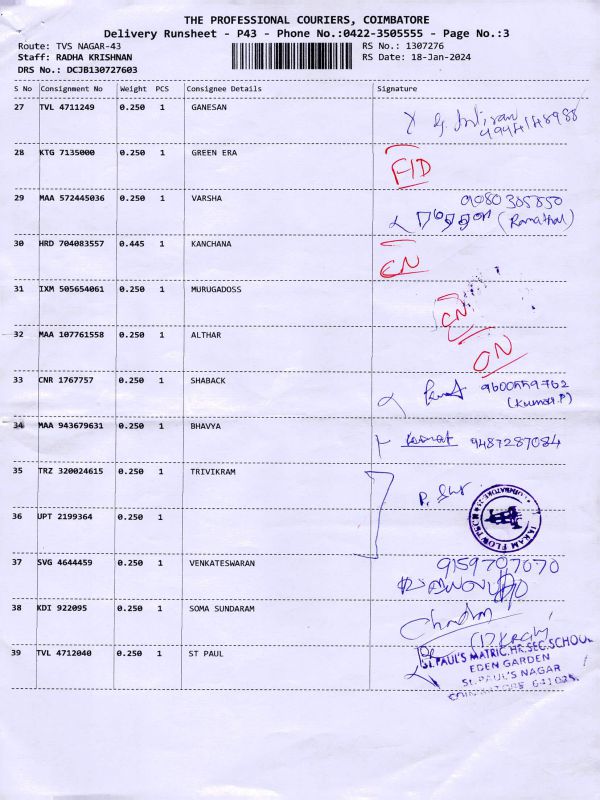 THE PROFESSIONAL COURIERS, COIMBATORE
Delivery Runsheet - P43 - Phone No.:0422-3505555 - Page No.:3
Route: TVS NAGAR-43 RS No.: 1307276
Staff: RADHA KRISHNAN RS Date: 18-Jan-2024
DRS No.: DCJB130727603
S No Consignment No Weight PCS Consignee Details Signature
27 TVL 4711249 0.250 1 GANESAN
28 KTG 7135000 0.250 1 GREEN ERA
FID
29 MAA 572445036 0.250 1 VARSHA 9080305550
(Ramathal)
30 HRD 704083557 0.445 1 KANCHANA
CN
31 IXM 505654061 0.250 1 MURUGADOSS
CN
32 MAA 107761558 0.250 1 ALTHAR
ON
33 CNR 1767757 0.250 1 SHABACK 9600559762
(Kumar.P)
34 MAA 943679631 0.250 1 BHAVYA 9487287084
35 TRZ 320024615 0.250 1 TRIVIKRAM
36 UPT 2199364 0.250 1
37 SVG 4644459 0.250 1 VENKATESWARAN 9159707070
38 KDI 922095 0.250 1 SOMA SUNDARAM
39 TVL 4712040 0.250 1 ST PAUL
St.PAUL'S MATRIC.HR.SEC.SCHOOL
EDEN GARDEN
St.PAUL'S NAGAR
COIMBATORE 641025